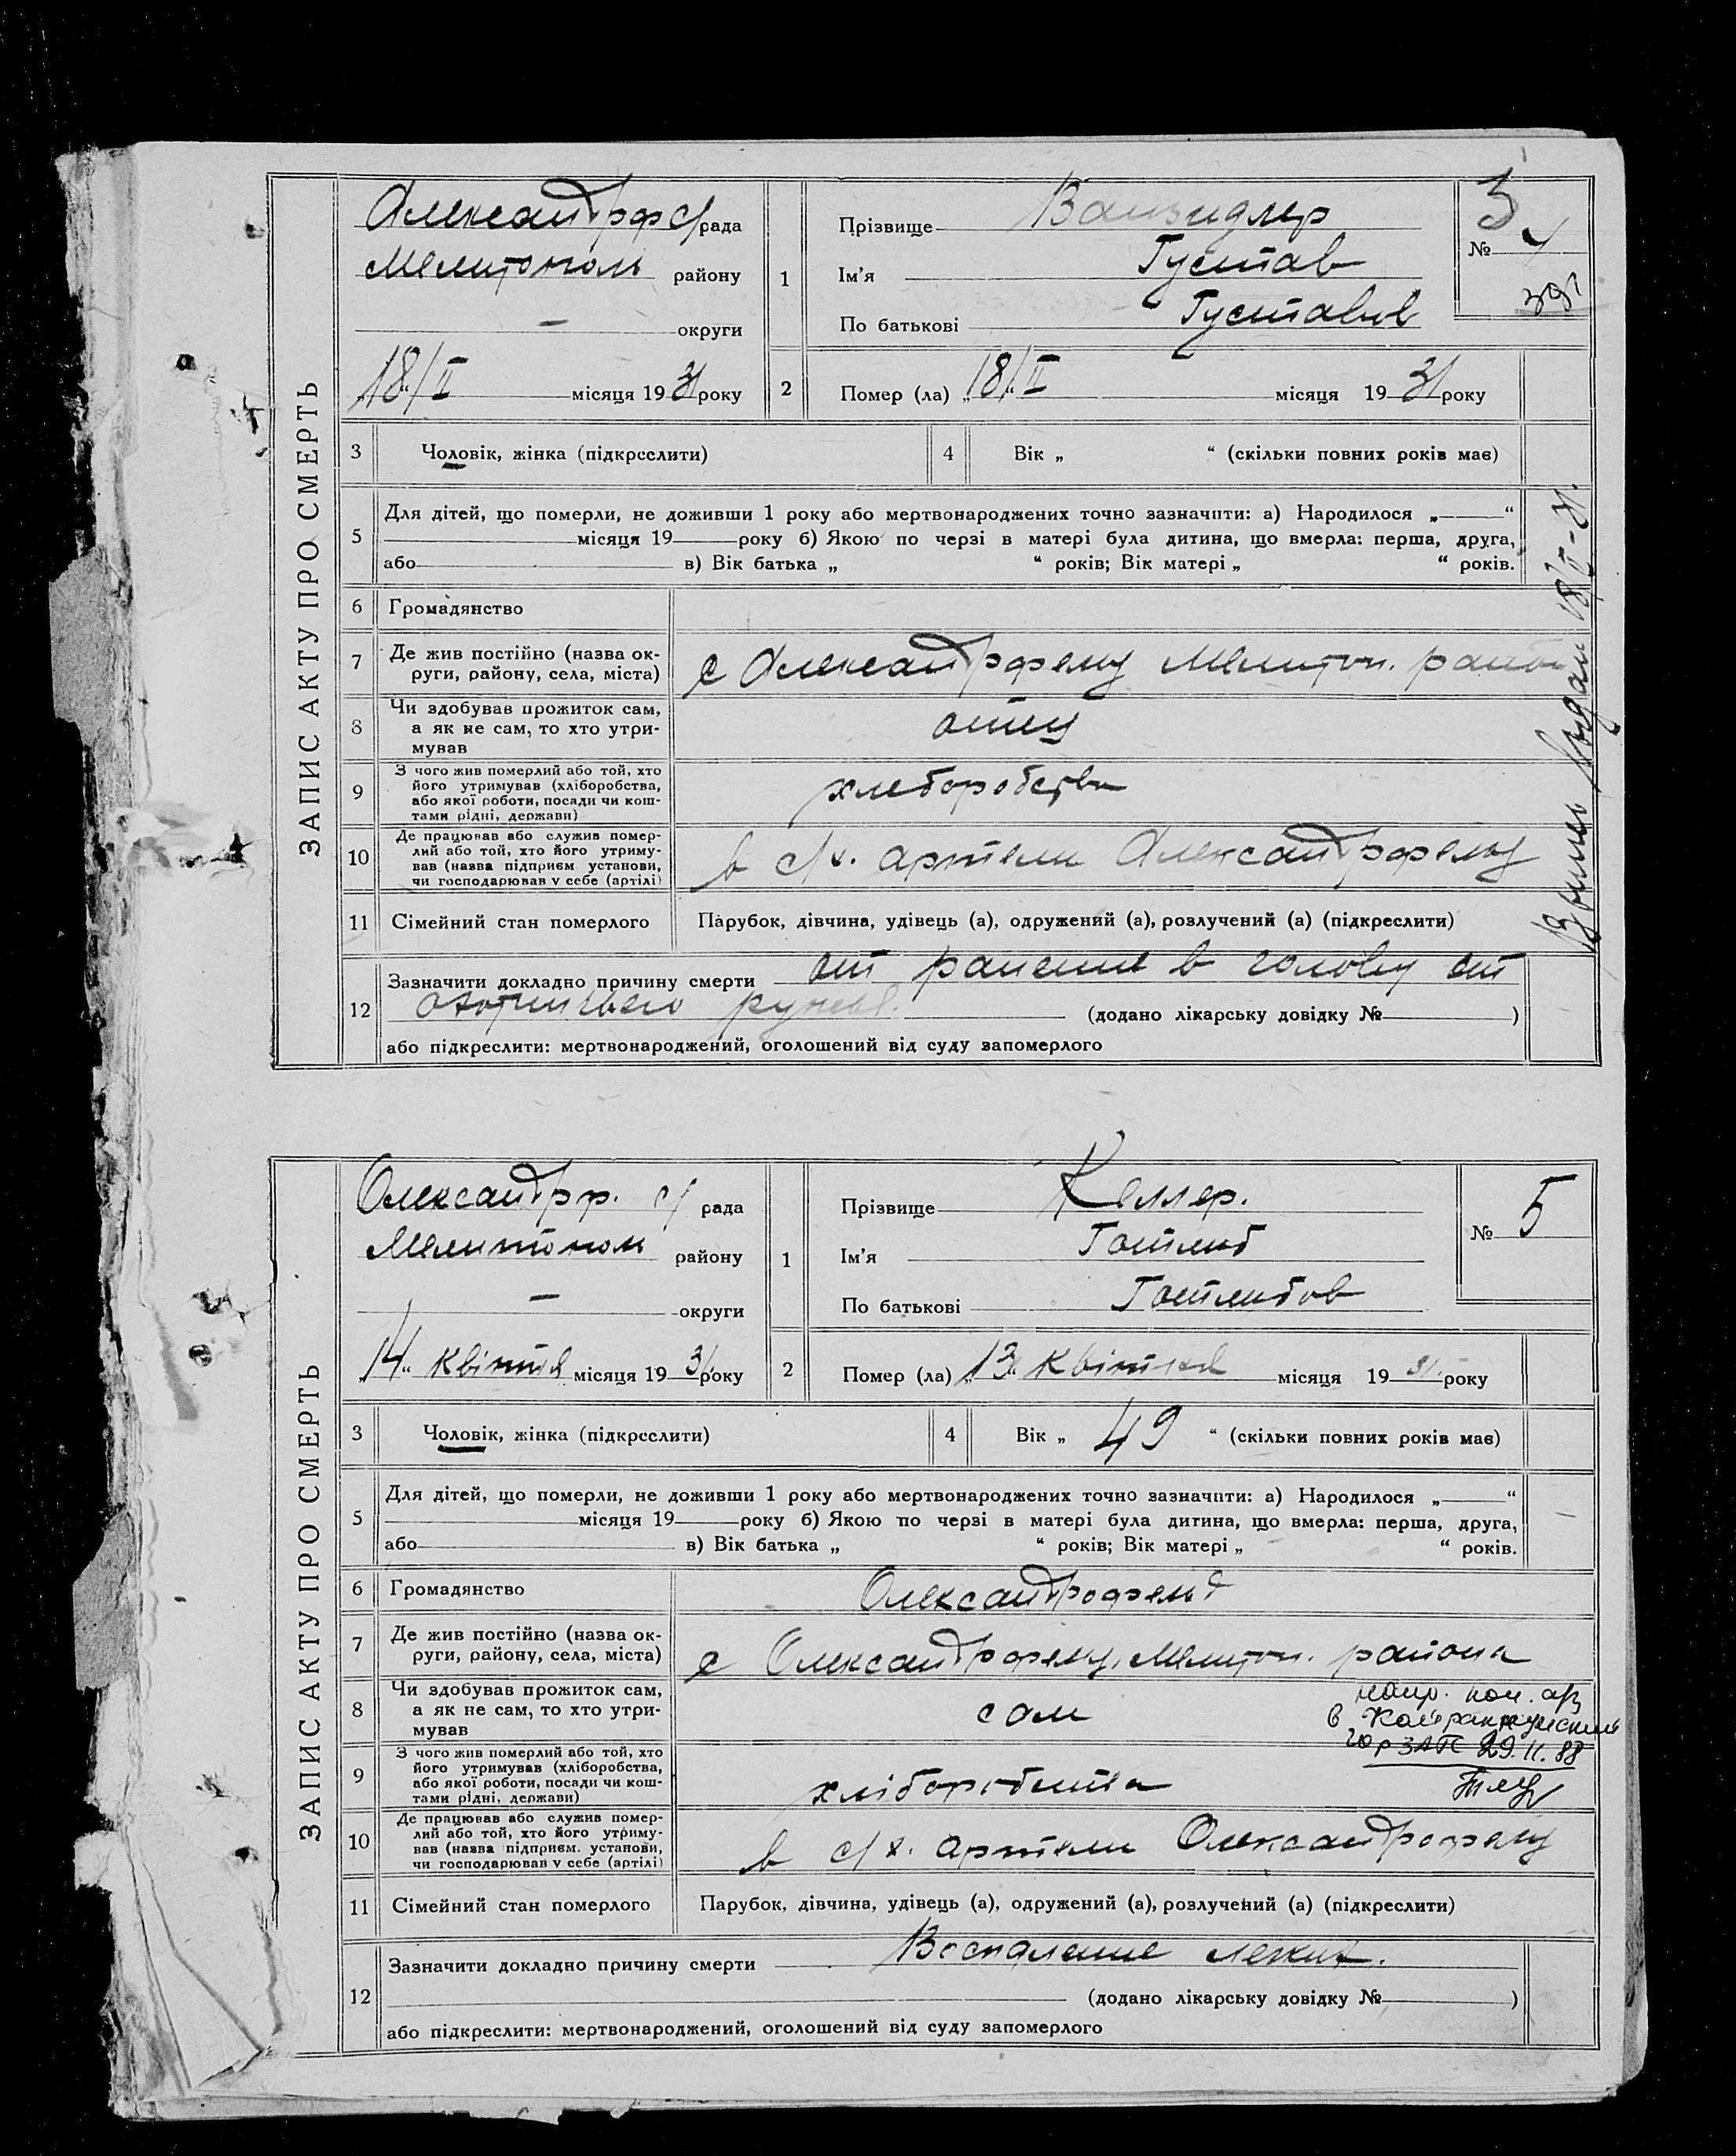 ЗАПИС АКТУ ПРО СМЕРТЬ
Александрф с/рада
Мелитополь району
— округи
18/II місяця 1931 року
1
Прізвище
Ім'я Густав
По батькові Густавов
3
№ 4
2 Помер (ла) „18/II“ місяця 1931 року
3 Чоловік, жінка (підкреслити)
4 Вік „ “ (скільки повних років має)
5 Для дітей, що померли, не доживши 1 року або мертвонароджених точно зазначити: а) Народилося „——“
місяця 19 року б) Якою по черзі в матері була дитина, що вмерла: перша, друга,
або в) Вік батька „ “ років; Вік матері „ “ років.
6 Громадянство
7 Де жив постійно (назва округи, району, села, міста)
с Александрофельд Мелитоп. район
8 Чи здобував прожиток сам, а як не сам, то хто утримував
отец
9 З чого жив померлий або той, хто його утримував (хліборобства, або якої роботи, посади чи коштами рідні, держави)
хлеборобства
10 Де працював або служив померлий або той, хто його утримував (назва підприєм. установи, чи господарював у себе (артілі)
в с/х. артели Александрофельд
11 Сімейний стан померлого
Парубок, дівчина, удівець (а), одружений (а), розлучений (а) (підкреслити)
12 Зазначити докладно причину смерти от ранения в голову от
охотничьего ружья.
(додано лікарську довідку № )
або підкреслити: мертвонароджений, оголошений від суду запомерлого
ЗАПИС АКТУ ПРО СМЕРТЬ
Олександрф. с/ рада
Мелитополь району
— округи
„14“ квітня місяця 1931 року
1
Прізвище Келлер.
Ім'я Готлиб
По батькові Готлибов
№ 5
2 Помер (ла) „13“ квітня місяця 1931 року
3 Чоловік, жінка (підкреслити)
4 Вік „ 49 “ (скільки повних років має)
5 Для дітей, що померли, не доживши 1 року або мертвонароджених точно зазначити: а) Народилося „——“
місяця 19 року б) Якою по черзі в матері була дитина, що вмерла: перша, друга,
або в) Вік батька „ “ років; Вік матері „ “ років.
6 Громадянство
Олександрофельд
7 Де жив постійно (назва округи, району, села, міста)
с Олександрофельд, Мелитоп. района
8 Чи здобував прожиток сам, а як не сам, то хто утримував
сам
в
горЗАГС 29.11.88
9 З чого жив померлий або той, хто його утримував (хліборобства, або якої роботи, посади чи коштами рідні, держави)
хліборобства
10 Де працював або служив померлий або той, хто його утримував (назва підприєм. установи, чи господарював у себе (артілі)
в с/х. артели Олександрофельд
11 Сімейний стан померлого
Парубок, дівчина, удівець (а), одружений (а), розлучений (а) (підкреслити)
12 Зазначити докладно причину смерти Воспаление легких.
(додано лікарську довідку № )
або підкреслити: мертвонароджений, оголошений від суду запомерлого